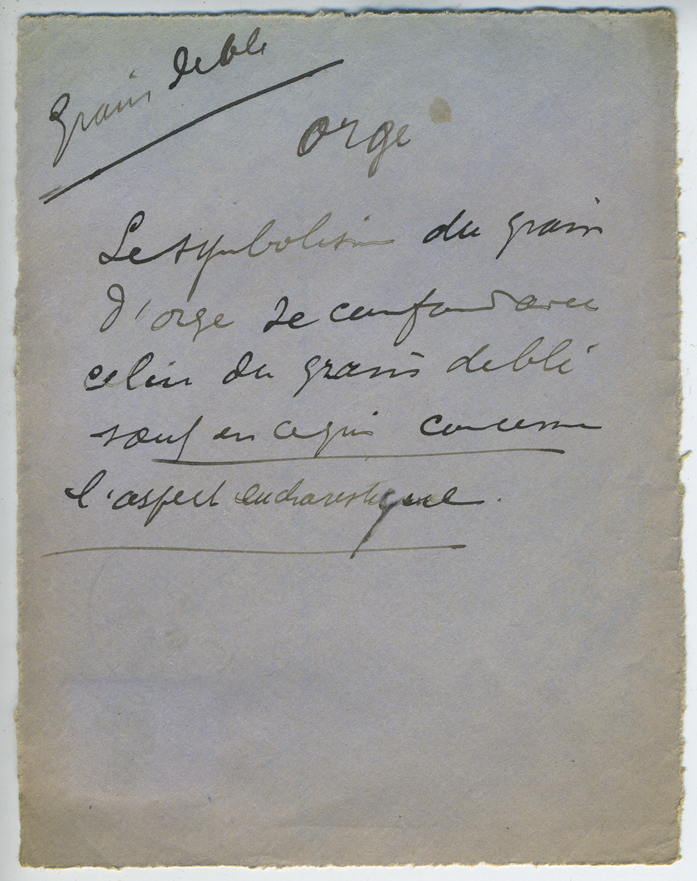 Grain de blé
orge
Le symbolisme du grain
d'orge se confond avec
celui du grain de blé
sauf en ce qui concerne
l'aspect eucharistique.